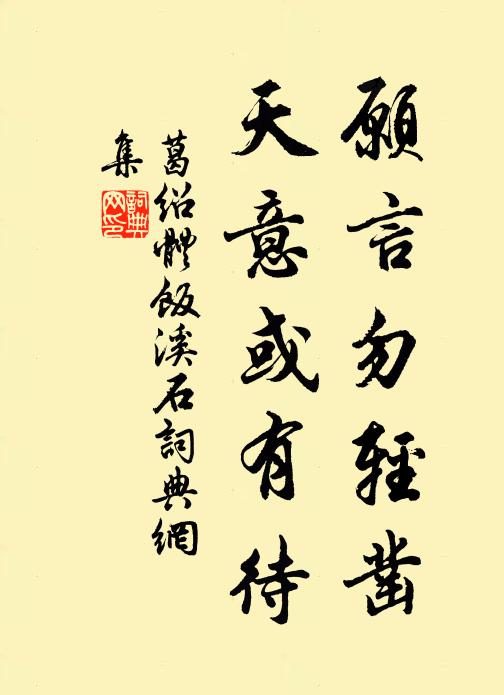 願言勿輕鑿
天意或有待
葛紹體飯溪石詞典網
集
詞典網印